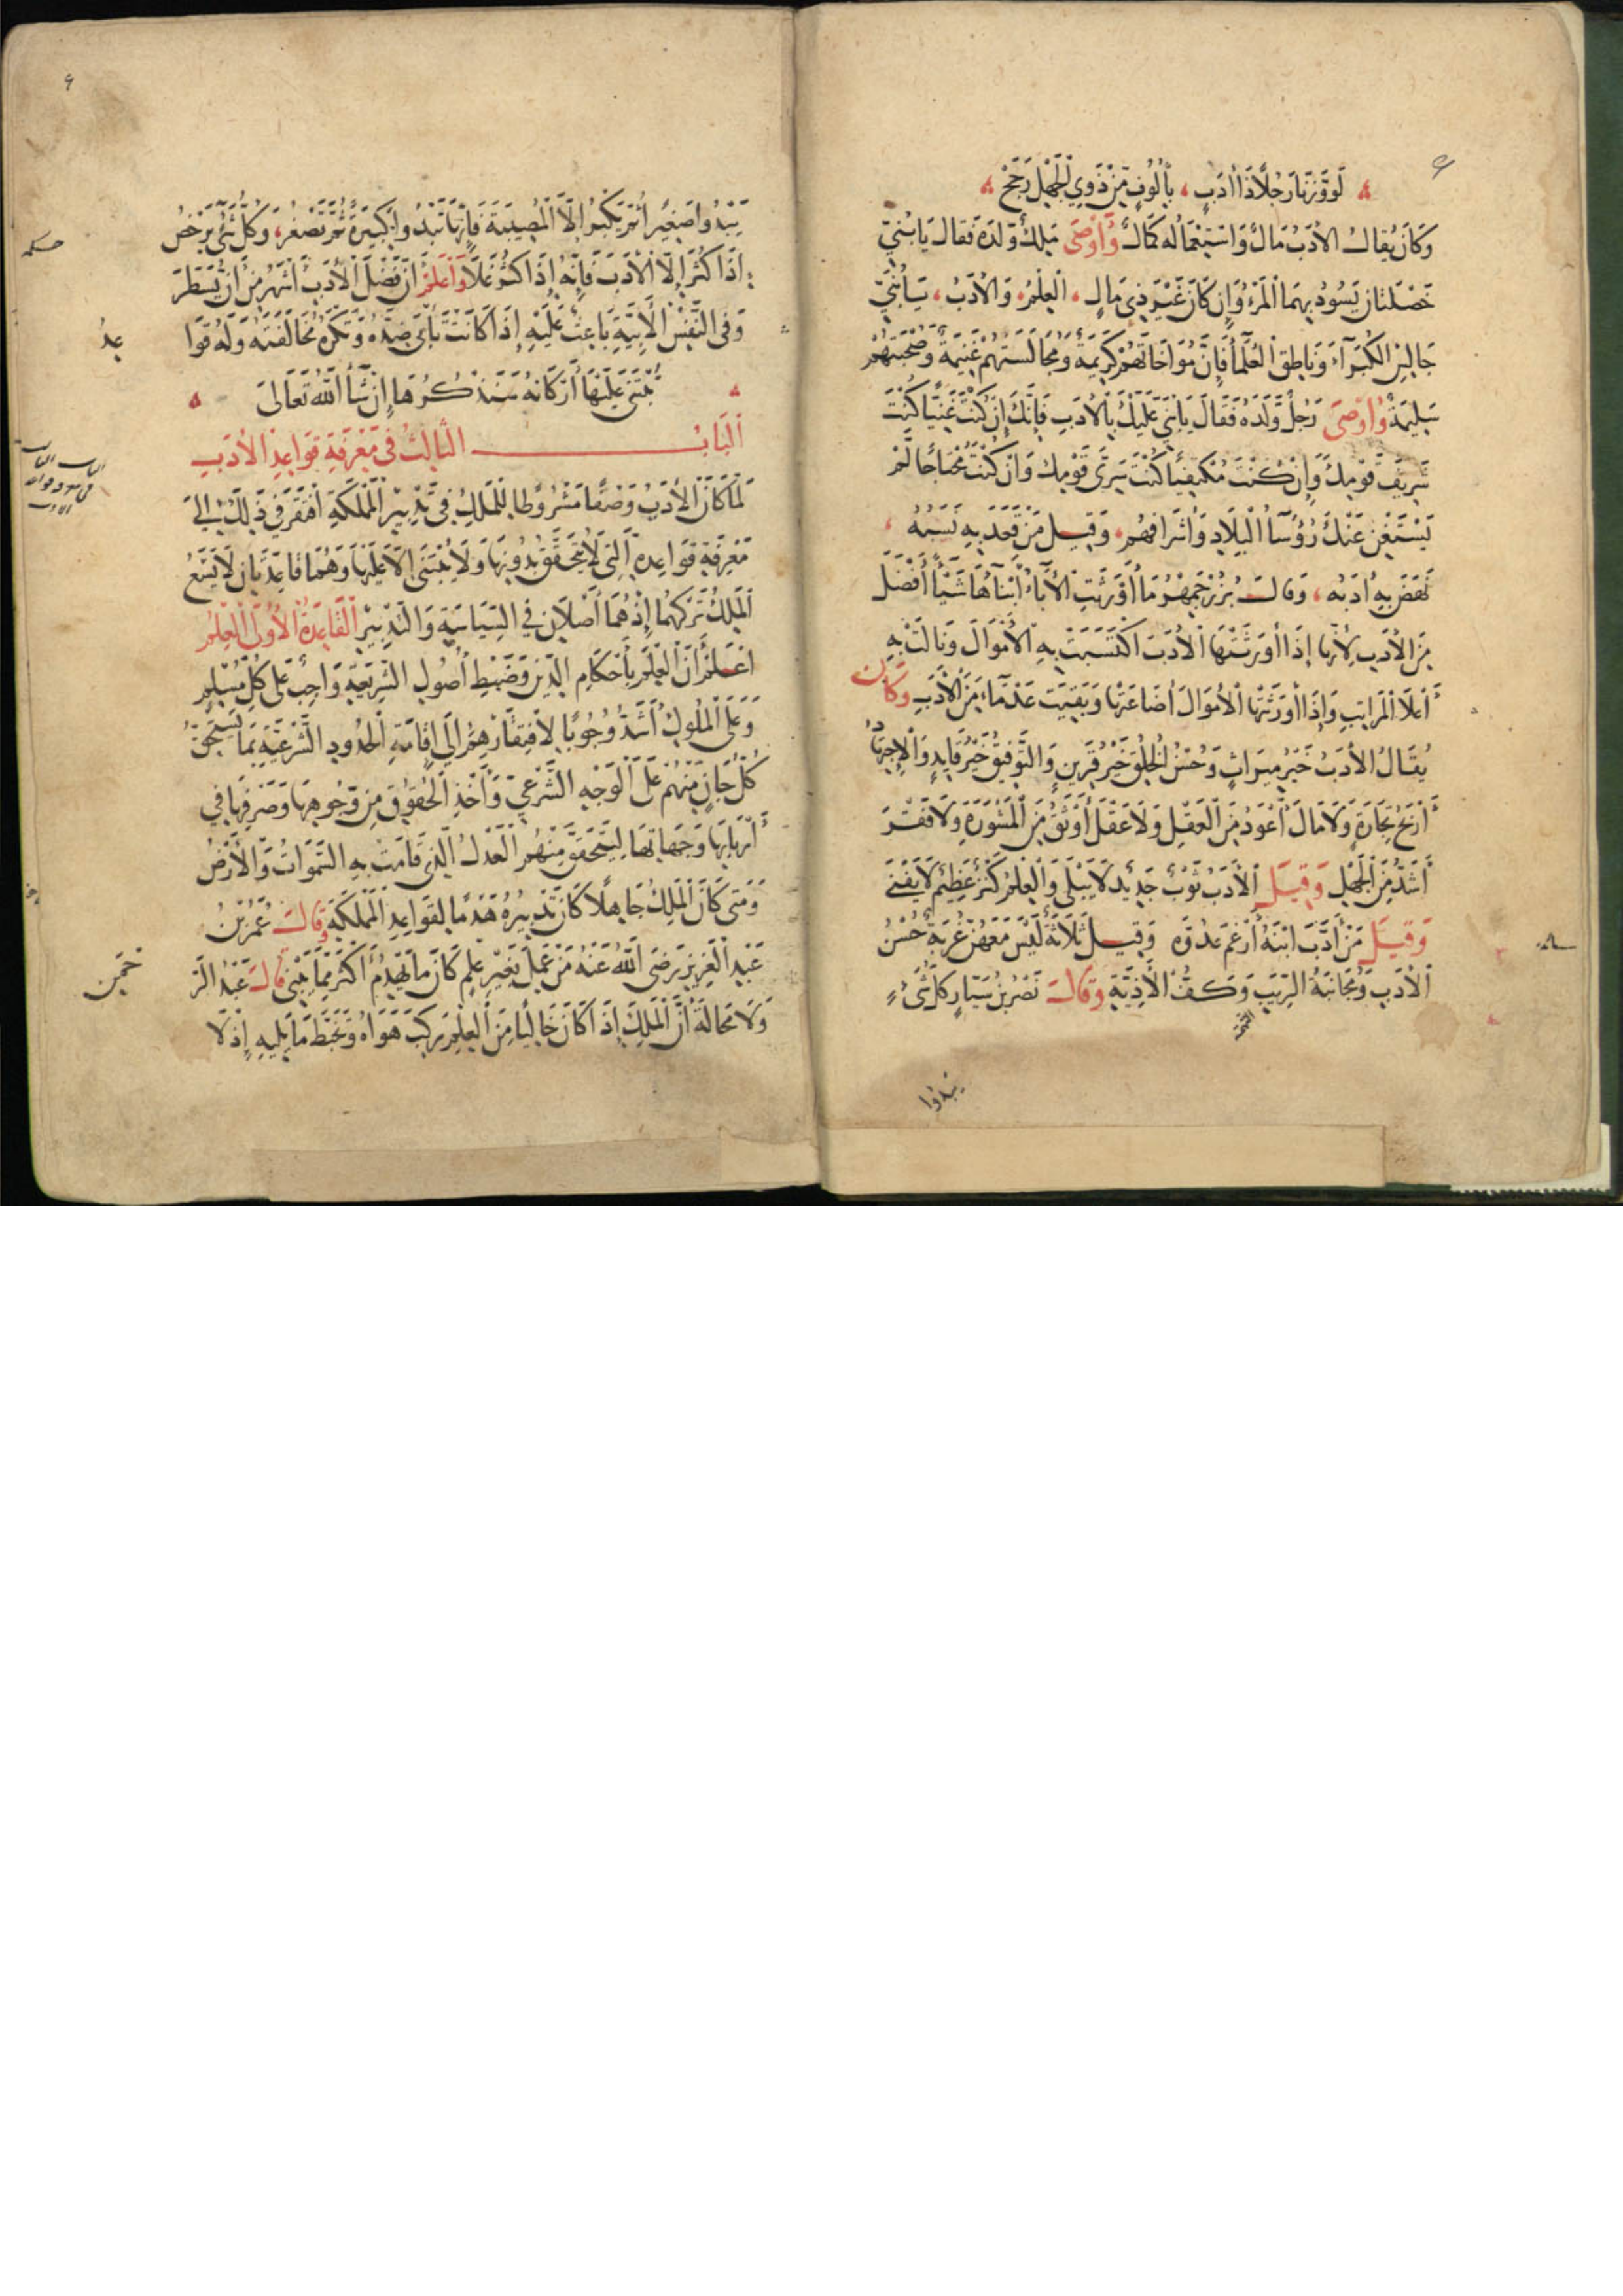 لَووَزَنَّا رَجُلًا ذَا أَدَبٍ ، بِأُلُوفٍ مِّنْ ذَوِي الْجَهْلِ رَجَحْ
وَكَانَ يُقَالُ الْأَدَبُ مَالٌ وَاسْتِعْمَالُه كَمَالٌ وَأَوْصَى مَلِكٌ وَلَدَهُ فَقَالَ يَا بُنَيَّ
خَصْلَتَانِ يَسُودُ بِهِمَا الْمَرْءُ وَإِن كَانَ غَيْرَ ذِي مَالٍ ، الْعِلْمُ ، وَالْأَدَبُ ، يَا بُنَيَّ
جَالِسِ الْكُبَرَآءَ وَنَاطِقِ الْعُلَمَآءَ فَإِنَّ مُوَاخَاتَهُمْ كَرِيمَةٌ وَمُجَالَسَتَهُمْ غَنِيمَةٌ وَصُحْبَتَهُمْ
سَلِيمَةٌ وَأَوْصَى رَجُلٌ وَلَدَهُ فَقَالَ يَا بُنَيَّ عَلَيْكَ بِالْأَدَبِ فَإِنَّكَ إِنْ كُنْتَ غَنِيًّا كُنْتَ
شَرِيفَ قَوْمِكَ وَإِنْ كُنْتَ مُكْتَفِيًا كُنْتَ سَرِيَّ قَوْمِكَ وَإِنْ كُنْتَ مُحْتَاجًا لَمْ
يَسْتَغْنِ عَنْكَ رُؤَسَآءُ الْبِلَادِ وَأَشْرَافُهُمْ ، وَقِيلَ مَنْ قَعَدَ بِهِ نَسَبُهُ ،
نَهَضَ بِهِ أَدَبُه ، وَقَالَ بُزُرْجَمِهْرُ مَا أَوْرَثَتِ الْآبَاءُ أَبْنَآءَهَا شَيْئًا أَفْضَلَ
مِنَ الْأَدَبِ لِأَنَّهَا إِذَا أَوْرَثَتْهَا الْأَدَبَ اكْتَسَبَتْ بِهِ الْأَمْوَالَ وَنَالَتْ بِهِ
أَعْلَا الْمَرَاتِبِ وَإِذَا أَوْرَثَتْهَا الْأَمْوَالَ أَضَاعَتْهَا وَبَقِيَتْ عَدْمَاءَ مِنَ الْأَدَبِ وَكَانَ
يُقَالُ الْأَدَبُ خَيْرُ مِيرَاثٍ وَحُسْنُ الْخُلُقِ خَيْرُ قَرِينٍ وَالتَّوْفِيقُ خَيْرُ قَايِدٍ وَالْاِجْتِهَادُ
أَرْبَحُ تِجَارَةٍ وَلَا مَالَ أَعْوَدُ مِنَ الْعَقْلِ وَلَا عَقْلَ أَوْثَقُ مِنَ الْمَشْوَرَةِ وَلَا فَقْرَ
أَشَدُّ مِنَ الْجَهْلِ وَقِيلَ الْأَدَبُ ثَوْبٌ جَدِيدٌ لَا يَبْلَى وَالْعِلْمُ كَنْزٌ عَظِيمٌ لَا يَفْنَى
وَقِيلَ مَنْ أَدَّبَ ابْنَهُ أَرْغَمَ عَدُوَّه وَقِيلَ ثَلَاثَةٌ لَيْسَ مَعَهُنَّ غُرْبَةٌ حُسْنُ
الْأَدَبِ وَمُجَانَبَةُ الرِّيَبِ وَكَفُّ الْأَذِيَّةِ وَقَالَ نَصْرُ بْنُ سَيَّارٍ كُلُّ شَيْءٍ
يَبْدُوا
٩
يَبْدُوا صَغِيرًا ثُمَّ يَكْبُرُ إِلَّا الْمُصِيبَةَ فَإِنَّهَا تَبْدُوا كَبِيرَةً ثُمَّ تَصْغُرُ ، وَكُلُّ شَيْءٍ يَرْخُصُ
إِذَا كَثُرَ إِلَّا الْأَدَبَ فَإِنَّهُ إِذَا كَثُرَ غَلَا وَاعْلَمْ أَنَّ فَضْلَ الْأَدَبِ أَشْهَرُ مِنْ أَنْ يُسَطَّرَ
وَفِي النَّفْسِ الْأَبِيَّةِ بَاعِثٌ عَلَيْهِ إِذَا كَانَتْ تَأْبَى ضِدَّهُ وَتَكْرَهُ مُخَالَفَتَهُ وَلَهُ قَوَا
عِدُ
يُبْتَنَى عَلَيْهَا أَرْكَانُهُ سَنَذْكُرُهَا إِنْ شَآءَ اللّٰهُ تَعَالَى
اَلْبَابُ الثَّالِثُ فِي مَعْرِفَةِ قَوَاعِدِ الْأَدَبِ
لَمَّا كَانَ الْأَدَبُ وَصْفًا مَشْرُوطًا لِلْمَلِكِ فِي تَدْبِيرِ الْمَمْلَكَةِ افْتَقَرَ فِي ذٰلِكَ إِلَى
مَعْرِفَةِ قَوَاعِدِهِ الَّتِي لَا يَتَحَقَّقُ بِدُونِهَا وَلَا يُبْتَنَى إِلَّا عَلَيْهَا وَهُمَا قَاعِدَتَانِ لَا يَسَعُ
الْمَلِكَ تَرْكُهُمَا إِذْ هُمَا أَصْلَانِ فِي السِّيَاسَةِ وَالتَّدْبِيرِ الْقَاعِدَةُ الْأُولَى الْعِلْمُ
اعْلَمْ أَنَّ الْعِلْمَ بِأَحْكَامِ الدِّينِ وَضَبْطِ أُصُولِ الشَّرِيعَةِ وَاجِبٌ عَلَى كُلِّ مُسْلِمٍ
وَعَلَى الْمُلُوكِ أَشَدُّ وُجُوبًا لِافْتِقَارِهِمْ إِلَى إِقَامَةِ الْحُدُودِ الشَّرْعِيَّةِ بِمَا يَسْتَحِقُّ
كُلُّ جَانٍ مِنْهُمْ عَلَى الْوَجْهِ الشَّرْعِيِّ وَأَخْذِ الْحُقُوقِ مِنْ وُجُوهِهَا وَصَرْفِهَا فِي
أَرْبَابِهَا وَجِهَاتِهَا لِيَتَحَقَّقَ مِنْهُمُ الْعَدْلُ الَّذِي قَامَتْ بِهِ السَّمٰوَاتُ وَالْأَرْضُ
وَمَتَى كَانَ الْمَلِكُ جَاهِلًا كَانَ تَدْبِيرُهُ هَدْمًا لِقَوَاعِدِ الْمَمْلَكَةِ وَقَالَ عُمَرُ بْنُ
عَبْدِ الْعَزِيزِ رَضِيَ اللّٰهُ عَنْهُ مَنْ عَمِلَ بِغَيْرِ عِلْمٍ كَانَ مَا يَهْدِمُ أَكْثَرَ مِمَّا يَبْنِي قَالَ عَبْدُ الرَّ
حْمٰنِ
وَلَا مَحَالَةَ أَنَّ الْمَلِكَ إِذَا كَانَ خَالِيًا مِنَ الْعِلْمِ رَكِبَ هَوَاهُ وَتَخَبَّطَ مَا يَلِيهِ إِذْ لَا